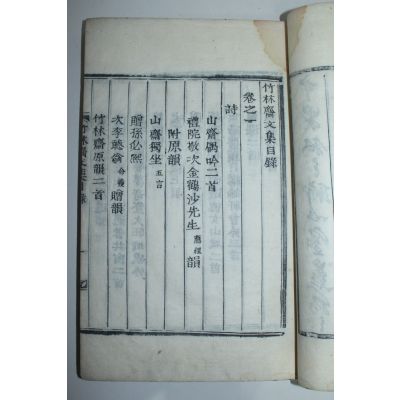 竹林齋文集目錄
卷之一
詩
山齋偶吟二首
禮院敬次金鶴沙先生應祖韻
附原韻
山齋獨坐五言
贈孫必熙
次李藝翁贈韻
竹林齋原韻二首